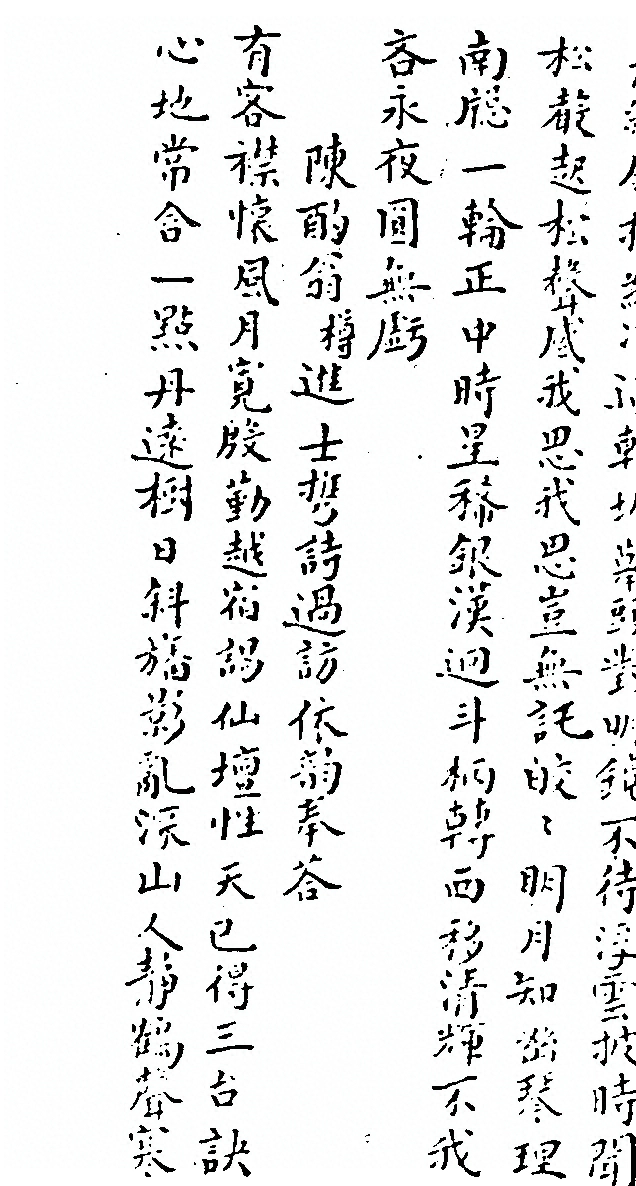 對明鏡不待浮雲披時聞
松聲起松聲感我思我思豈無託皎〻明月知幽琴理
南牕一輪正中時星稀銀漢迴斗柄轉西移清輝不我
吝永夜圓無虧
陳酌翁樽進士携詩過訪依韵奉荅
有客襟懷風月寬殷勤越宿謁仙壇性天已得三台訣
心地常含一點丹遠樹日斜旛影亂深山人靜鶴聲寒